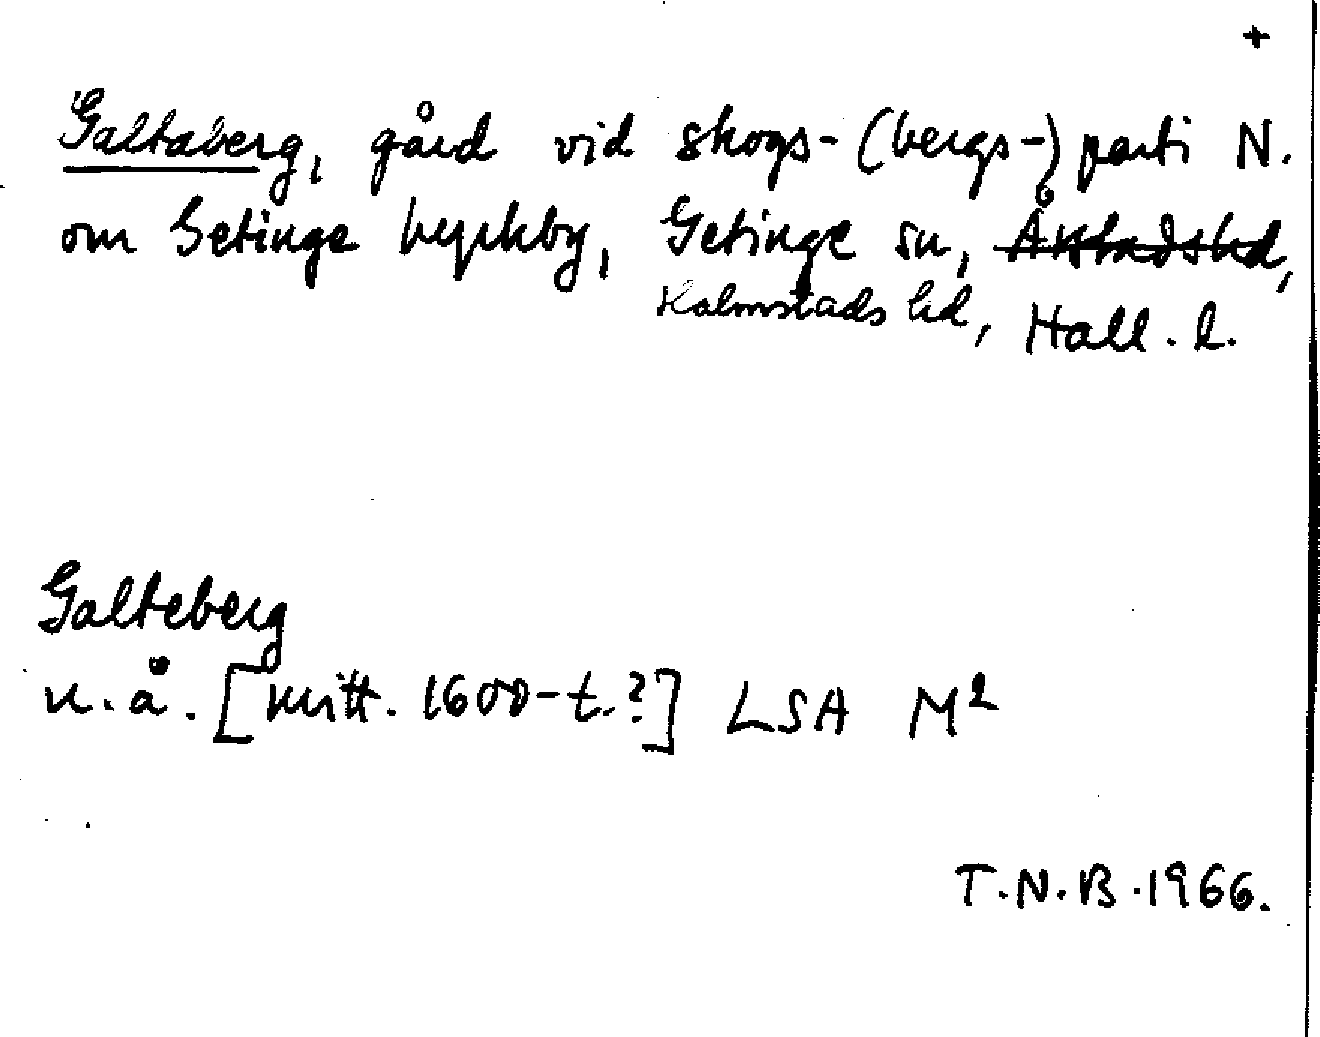 +
Galtaberg, gård vid skogs-(bergs-)parti N.
om Getinge kyrkby, Getinge sn, Årstadshd,
Halmstads hd, Hall. l.
Galteberg
u. å. [mitt. 1600-t.?] LSA M²
T.N.B. 1966.